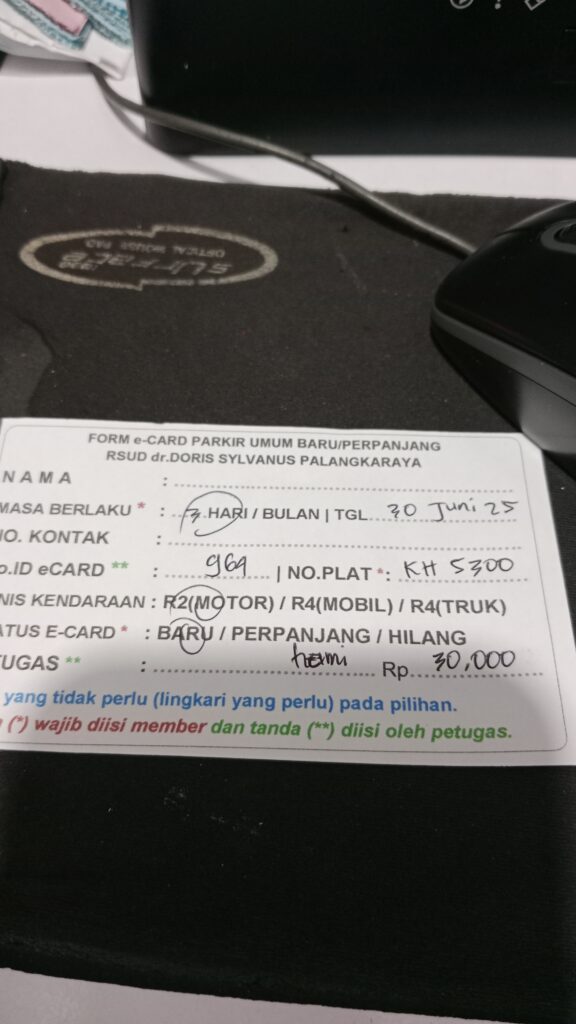 FORM e-CARD PARKIR UMUM BARU/PERPANJANG
RSUD dr.DORIS SYLVANUS PALANGKARAYA
NAMA :
MASA BERLAKU * : 3 HARI / BULAN | TGL 30 Juni 25
NO. KONTAK :
o.ID eCARD ** : 969 | NO.PLAT *: KH 5300
NIS KENDARAAN : R2(MOTOR) / R4(MOBIL) / R4(TRUK)
ATUS E-CARD * : BARU / PERPANJANG / HILANG
TUGAS ** : hermi Rp 30,000
yang tidak perlu (lingkari yang perlu) pada pilihan.
(*) wajib diisi member dan tanda (**) diisi oleh petugas.
OPTICAL MOUSE PAD